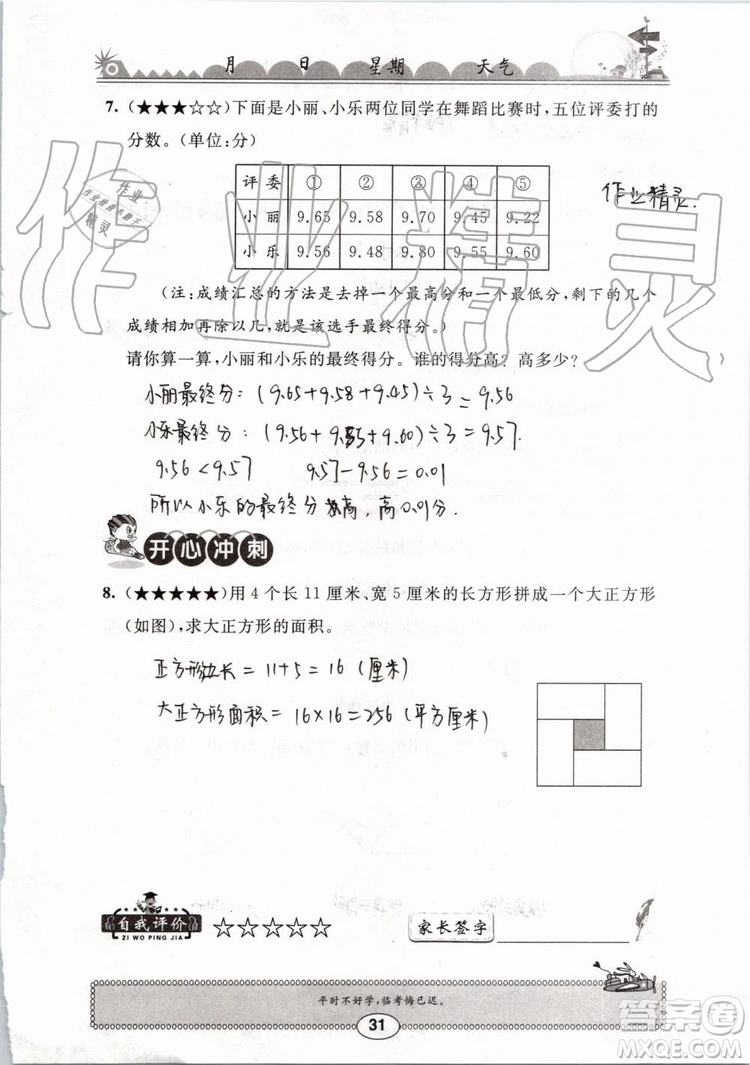 月 日 星期 天气
7. (★★★☆☆)下面是小丽、小乐两位同学在舞蹈比赛时,五位评委打的
分数。(单位:分)
评委 ① ② ③ ④ ⑤
小丽 9.65 9.58 9.70 9.45 9.22
小乐 9.56 9.48 9.80 9.55 9.60
作业精灵
作业精灵
(注:成绩汇总的方法是去掉一个最高分和一个最低分,剩下的几个
成绩相加再除以几,就是该选手最终得分。)
请你算一算,小丽和小乐的最终得分。谁的得分高?高多少?
小丽最终分:(9.65+9.58+9.45)÷3=9.56
小乐最终分:(9.56+9.55+9.60)÷3=9.57.
9.56<9.57 9.57-9.56=0.01
所以小乐的最终分高,高0.01分.
开心冲刺
8. (★★★★★)用4个长11厘米、宽5厘米的长方形拼成一个大正方形
(如图),求大正方形的面积。
正方形边长=11+5=16(厘米)
大正方形面积=16×16=256(平方厘米)
自我评价
ZI WO PING JIA
☆☆☆☆☆
家长签字
平时不好学,临考悔已迟。
31
答案卷
MXQE.COM